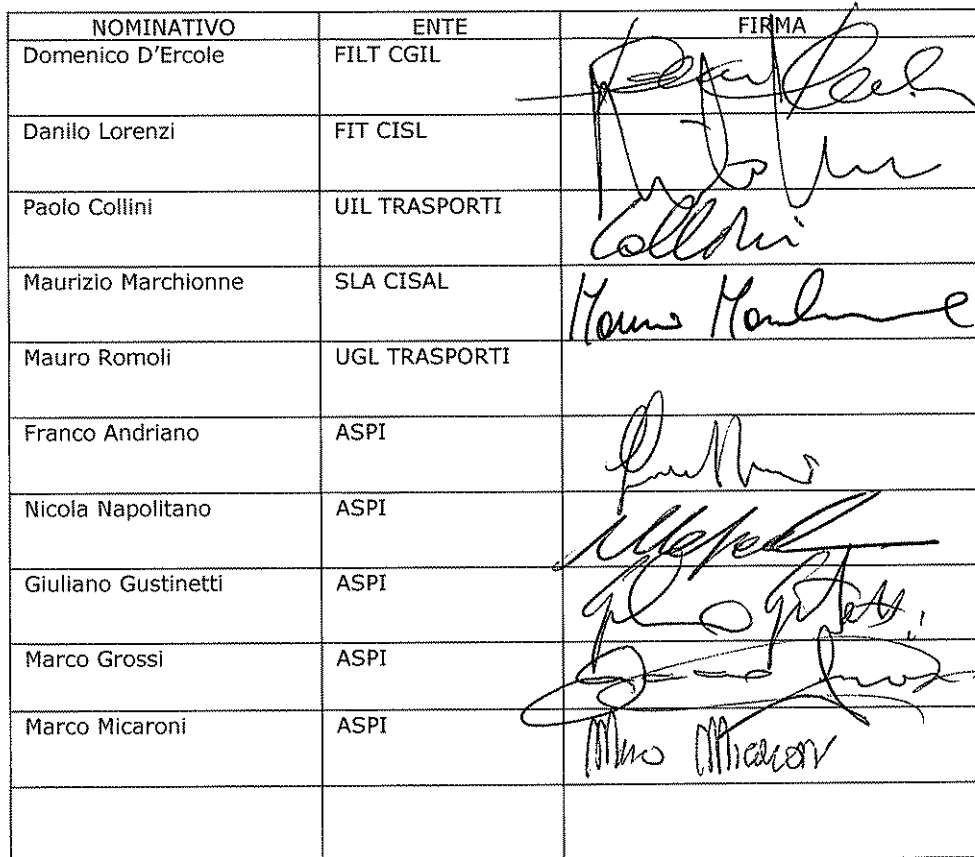 NOMINATIVO ENTE FIRMA
Domenico D'Ercole FILT CGIL
Danilo Lorenzi FIT CISL
Paolo Collini UIL TRASPORTI Collini
Maurizio Marchionne SLA CISAL
Mauro Romoli UGL TRASPORTI
Franco Andriano ASPI
Nicola Napolitano ASPI
Giuliano Gustinetti ASPI
Marco Grossi ASPI
Marco Micaroni ASPI